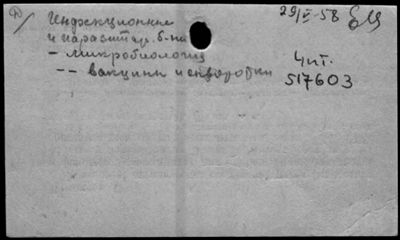 Инфекционные
и паразитар. б-ни
- микробиология
-- вакцины и сыворотки
29/V-58
чит.
517603